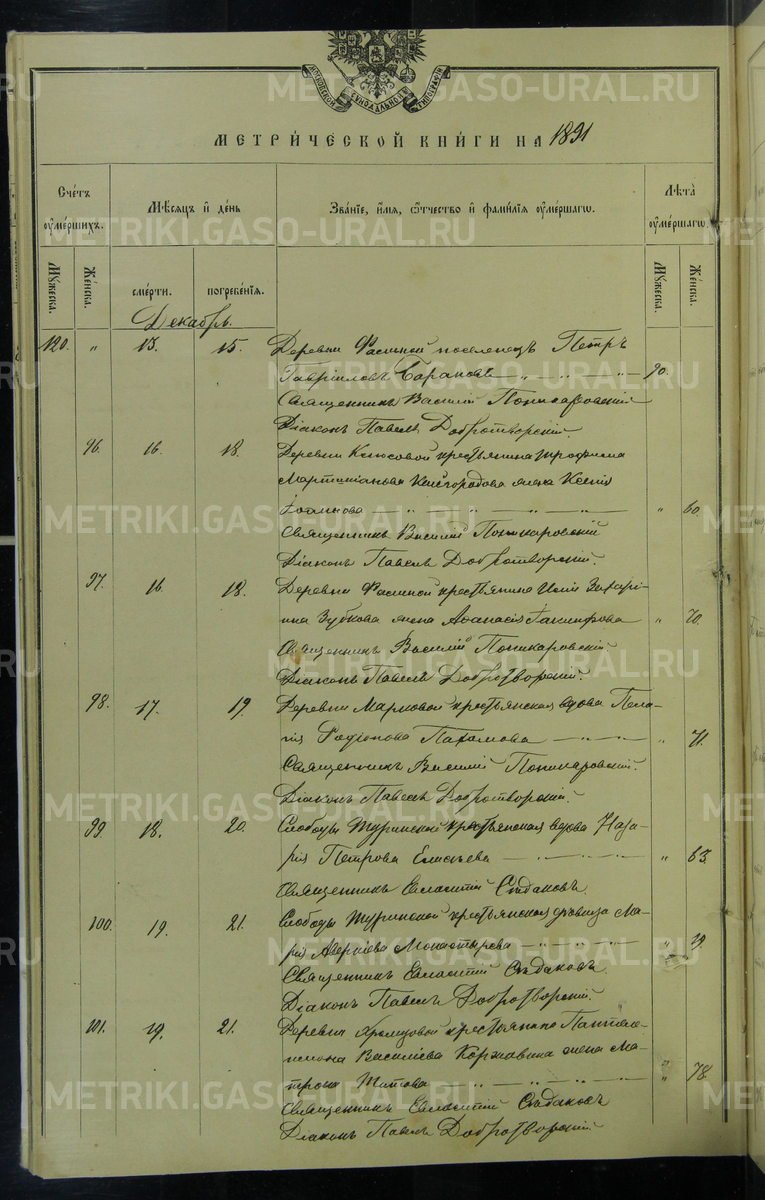 МОСКОВСКОЙ СѴНОДАЛЬНОЙ ТИПОГРАФІИ
МЕТРИ́ЧЕСКОЙ КНИ́ГИ НА 1891
Сче́тъ оу҆ме́ршихъ.
Мѣ́сяцъ и҆ де́нь
Зва́ніе, и҆́мя, ѻ҆́тчество и҆ фами́лія оу҆ме́ршагѡ.
Лѣ́та оу҆ме́ршагѡ.
Мꙋ́жеска.
Же́нска.
сме́рти.
погребе́нія.
Мꙋ́жеска.
Же́нска.
Декабрь.
120. „ 13. 15. Деревни Фасиной поселенецъ Петръ
Гавріиловъ Барановъ 90.
Священникъ Василій Поникаровскій
Діаконъ Павелъ Добротворскій.
96. 16. 18. Деревни крестьянина Трофима
Мартиніанова Кайгородова жена Ксенія
Іоаннова „ 60.
Священникъ Василій Поникаровскій
Діаконъ Павелъ Добротворскій.
97. 16. 18. Деревни Фасиной крестьянина Иліи Захарі-
ина Зубкова жена Аѳанасія „ 70.
Священникъ Василій Поникаровскій
Діаконъ Павелъ Добротворскій.
98. 17. 19. Деревни Марковой крестьянская вдова Пела-
гія Родіонова Пахомова „ 71.
Священникъ Василій Поникаровскій.
Діаконъ Павелъ Добротворскій.
99. 18. 20. Слободы Туринской крестьянская вдова Наза-
рія Петрова Елисѣева „ 63.
Священникъ Евлампій Сѣдаковъ
100. 19. 21. Слободы Туринской крестьянская дѣвица Ма-
рія Аверкіева Монастырева „ 19.
Священникъ Евлампій Сѣдаковъ
Діаконъ Павелъ Добротворскій.
101. 19. 21. Деревни крестьянина Пантеле-
имона Василіева Коржавина жена Ма-
трона Титова „ 78.
Священникъ Евлампій Сѣдаковъ
Діаконъ Павелъ Добротворскій.
METRIKI.GASO-URAL.RU